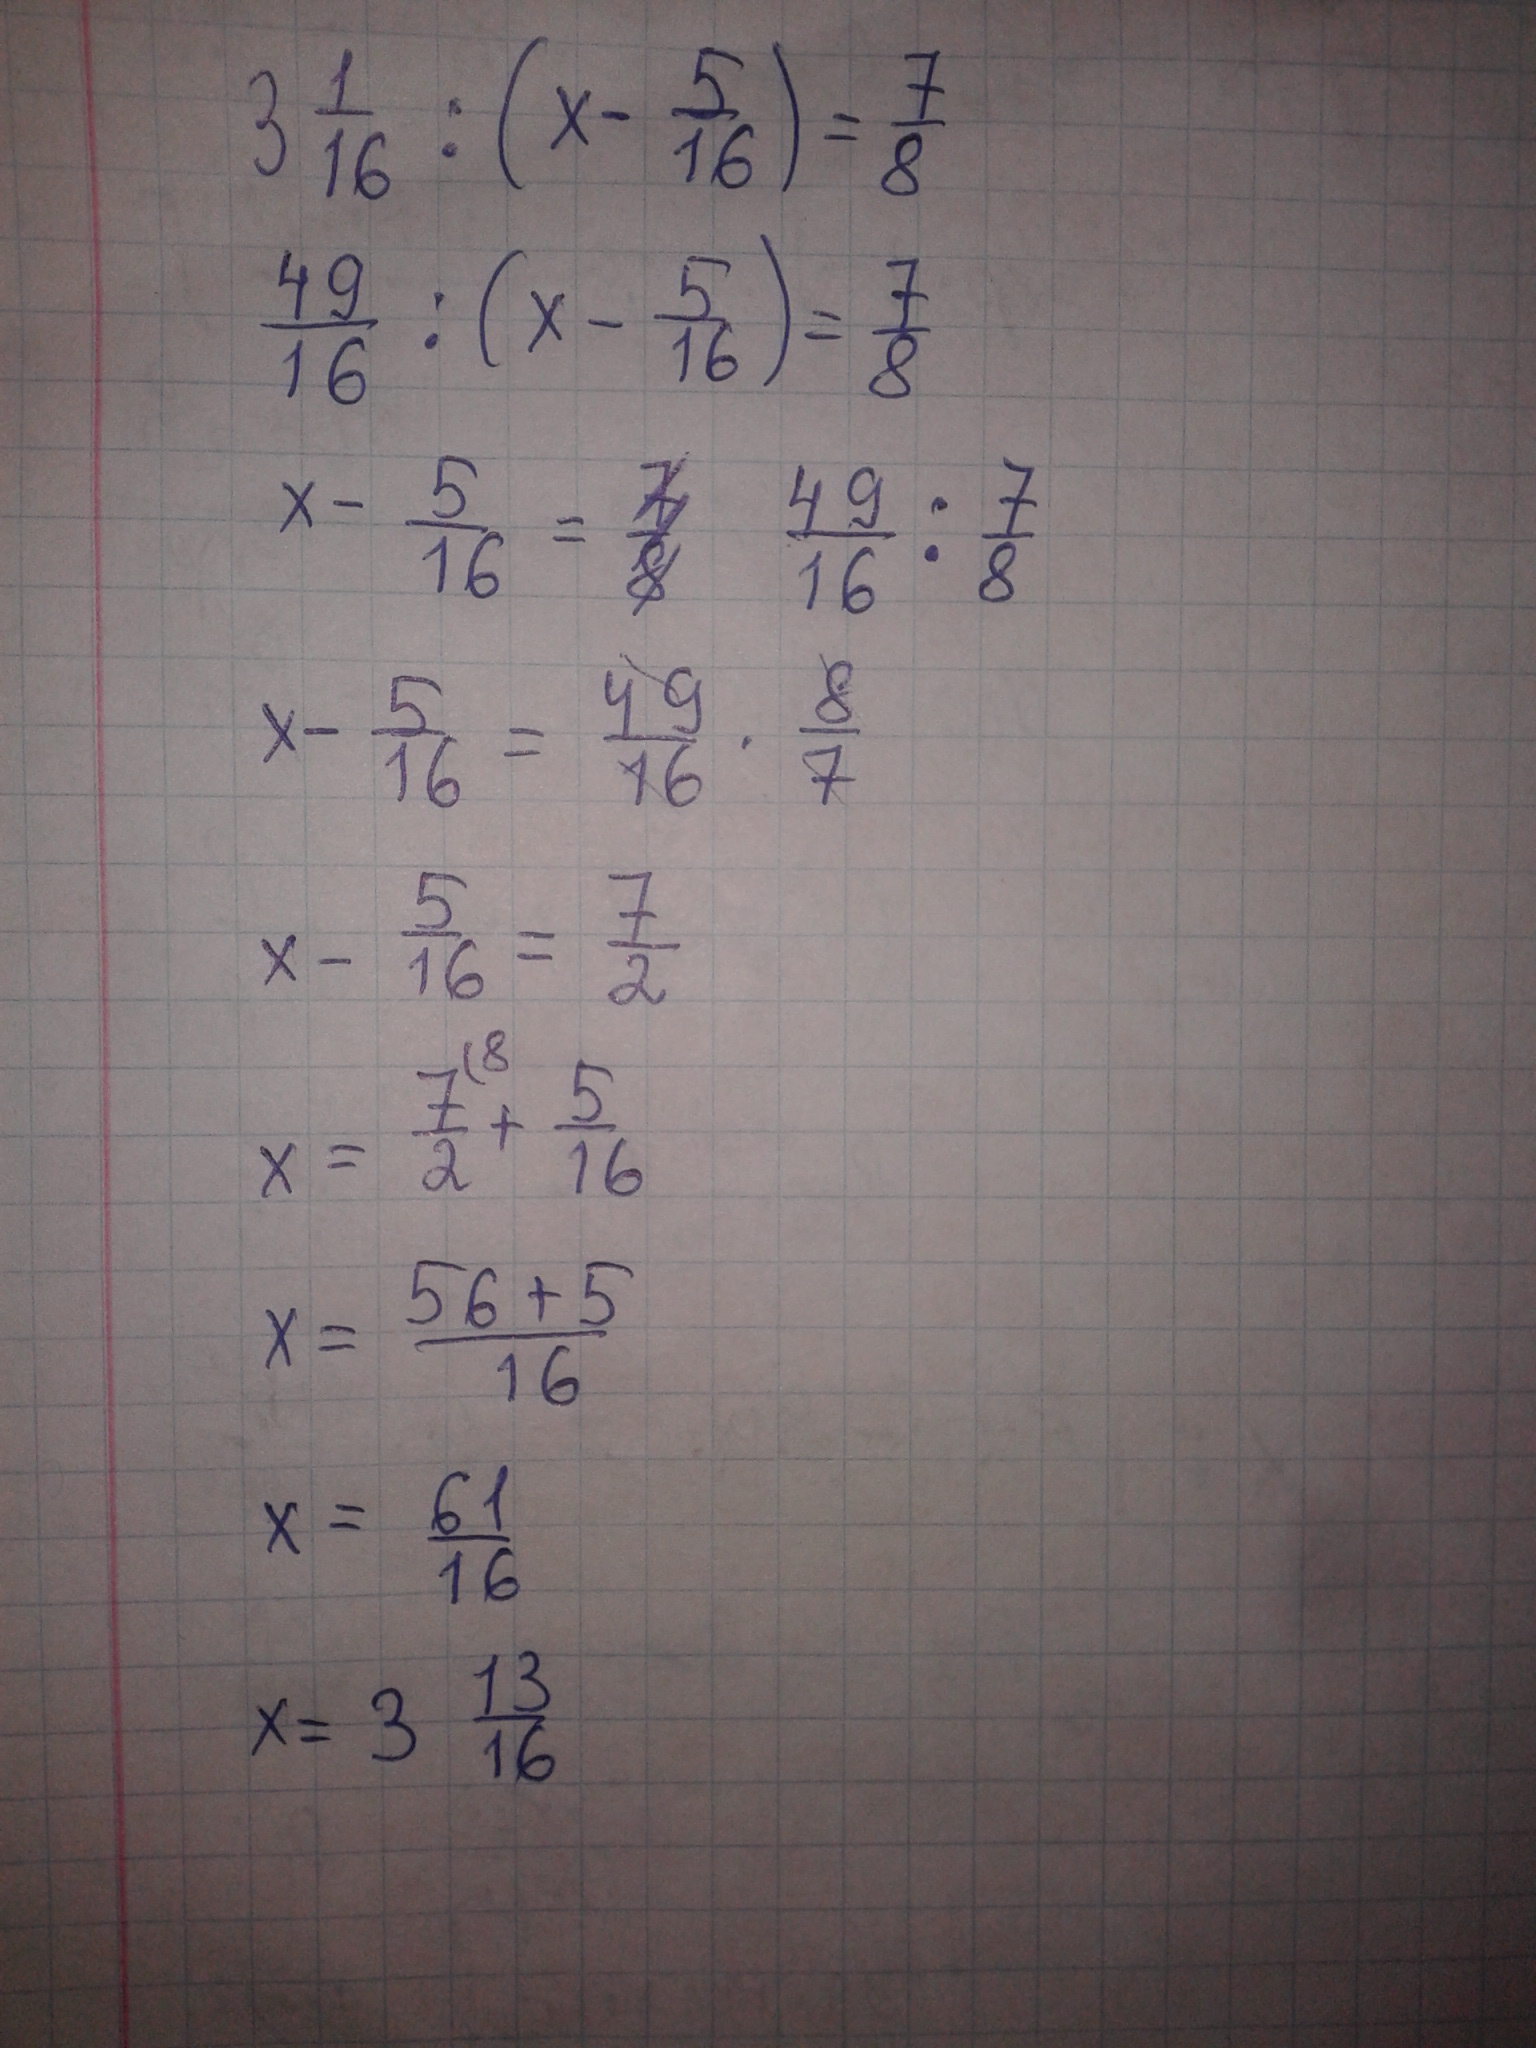 3 1/16 : (x - 5/16) = 7/8
49/16 : (x - 5/16) = 7/8
x - 5/16 = 7/8 49/16 : 7/8
x - 5/16 = 49/16 · 8/7
x - 5/16 = 7/2
x = 7/2 (8 + 5/16
x = 56+5/16
x = 61/16
x = 3 13/16